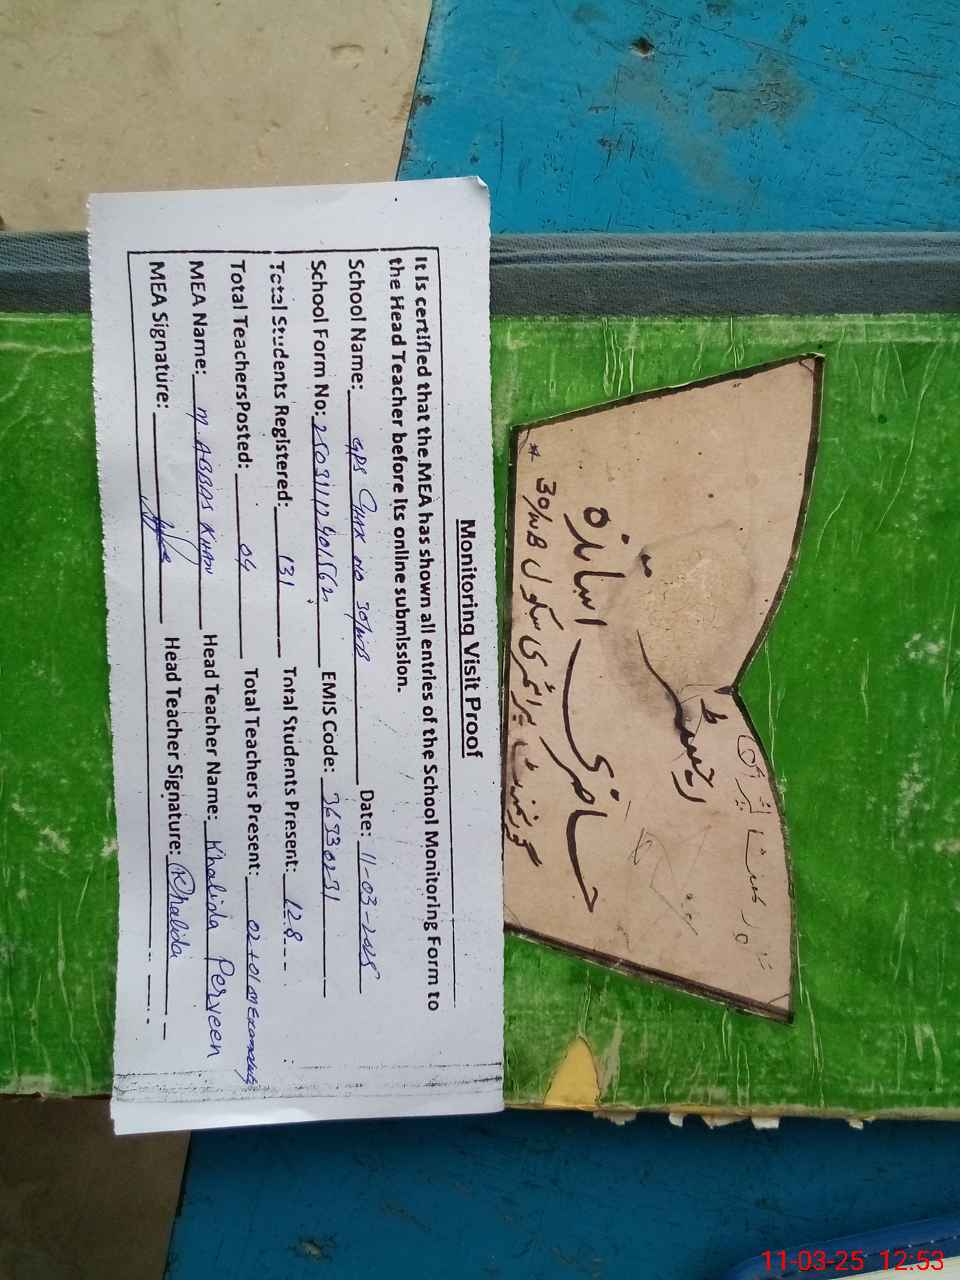 Monitoring Visit Proof
It is certified that the MEA has shown all entries of the School Monitoring Form to
the Head Teacher before its online submission.
School Name: GPS Chak No 30/WB Date: 11-03-2025
School Form No: EMIS Code: 36330231
Total Students Registered: 131 Total Students Present: 128
Total TeachersPosted: 04 Total Teachers Present: 02+01
MEA Name: M ABBAS KHAN Head Teacher Name: Khalida Perveen
MEA Signature: Head Teacher Signature: Khalida
رجسٹر
حاضری اساتذہ
گورنمنٹ پرائمری سکول 30/WB
11-03-25 12:53